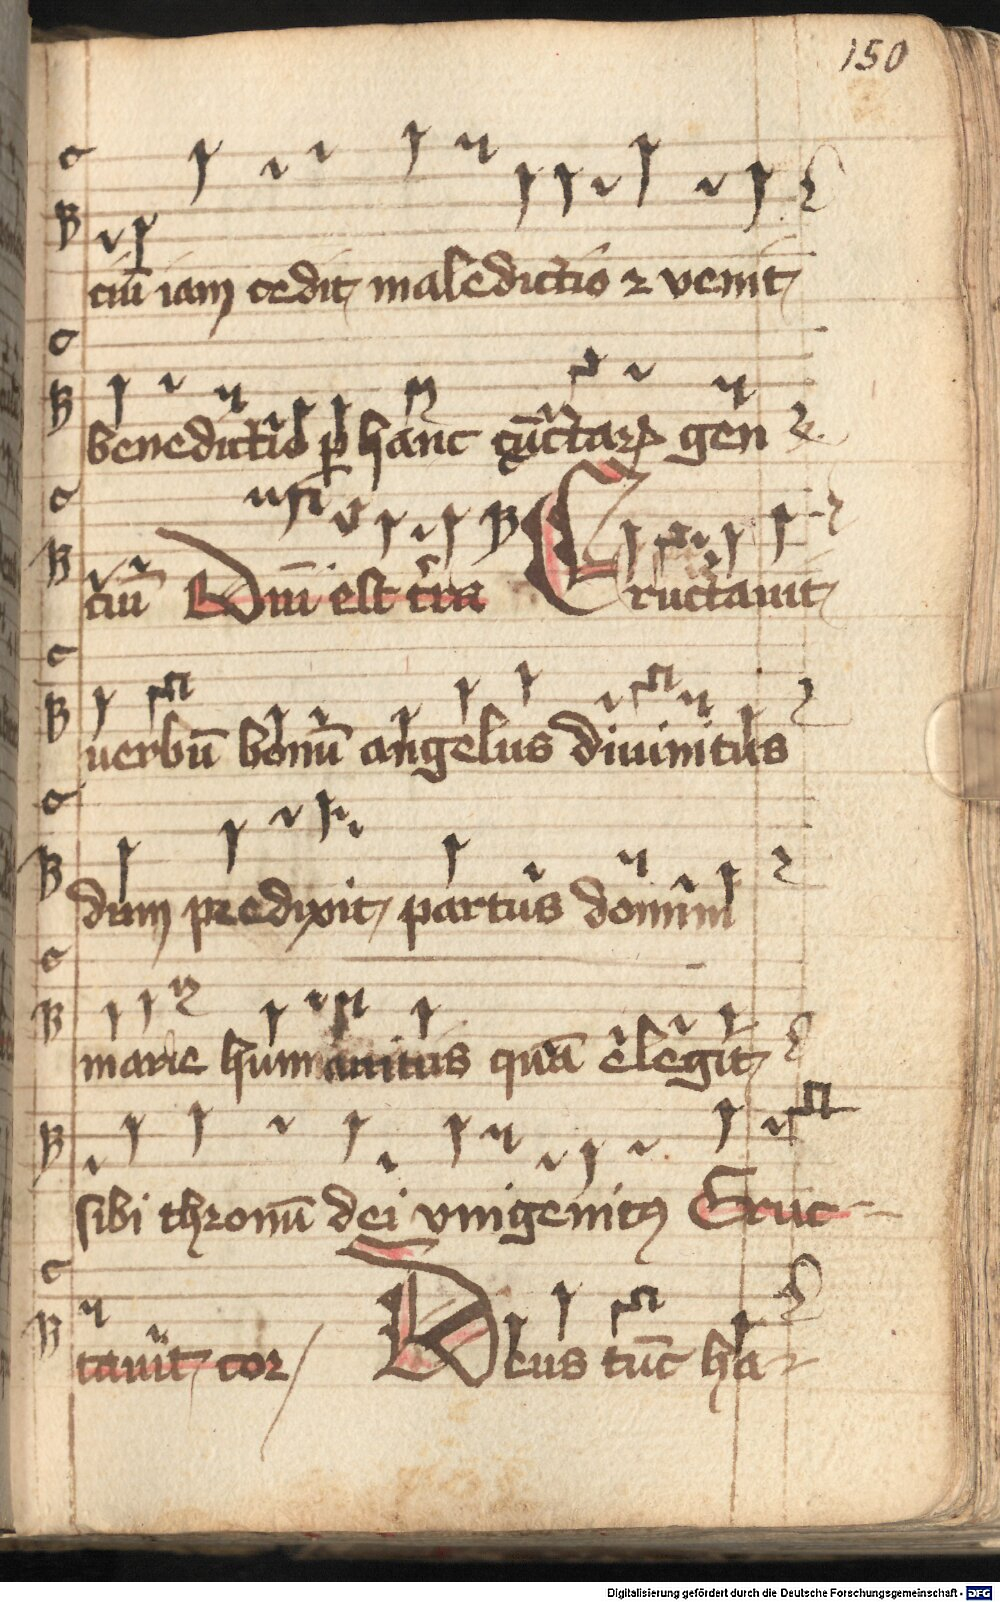 150
ciū iam cedit maledictio ⁊ venit
benedictio ꝑ hanc cūctarꝝ gen
ciū Dnī est t̄ra Eructauit
verbū bonū angelus diuinitus
dum predixit partus domini
marie humanitus quā elegit
sibi thronū dei vnigenitꝰ Eruc-
tauit cor Deus tūc ha-
Digitalisierung gefördert durch die Deutsche Forschungsgemeinschaft - DFG